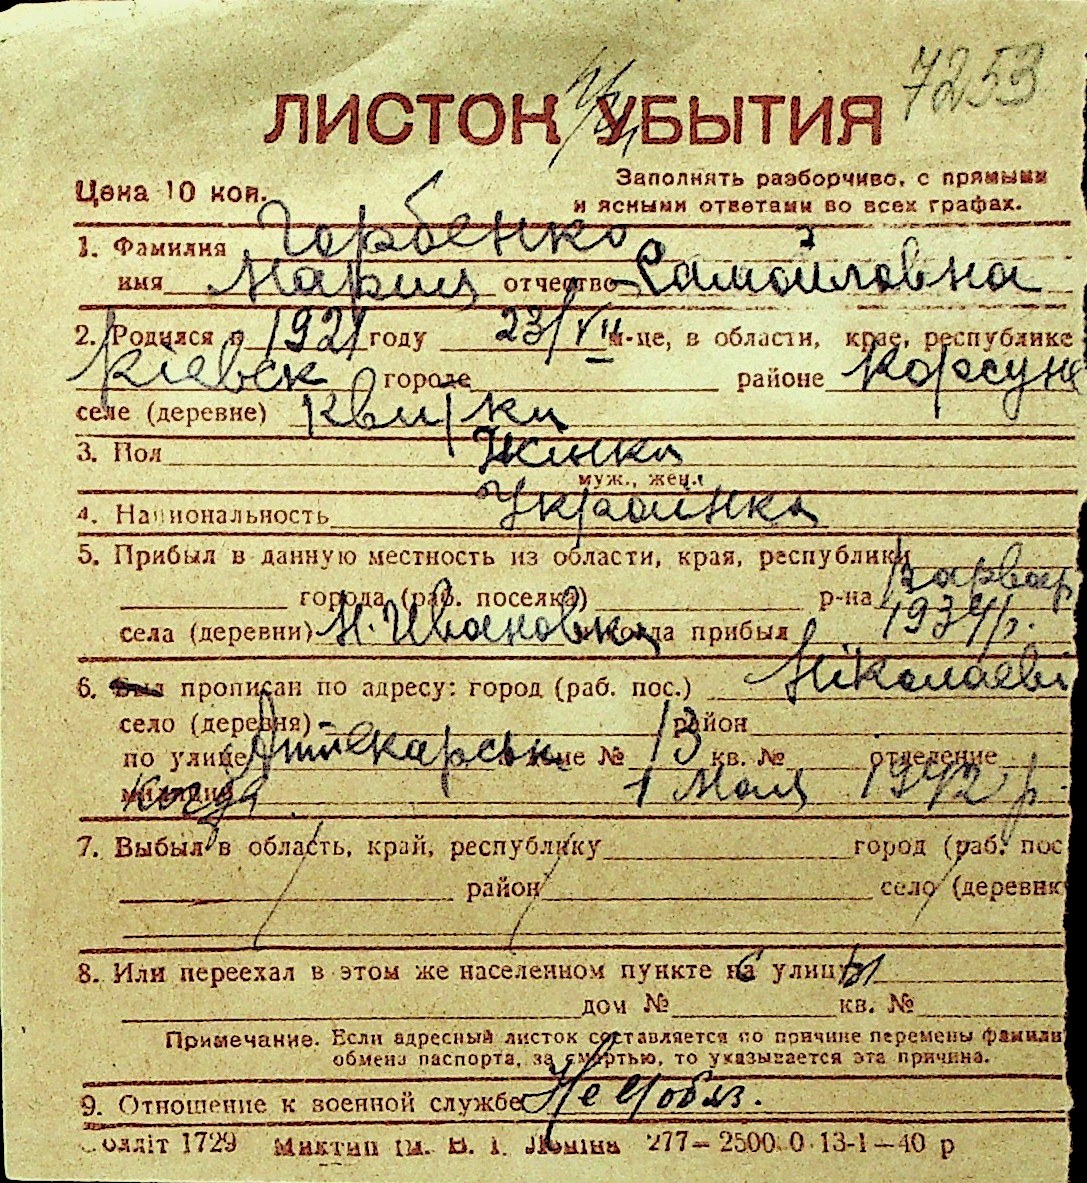 7253
ЛИСТОК УБЫТИЯ
Цена 10 коп.
Заполнять разборчиво, с прямыми
и ясными ответами во всех графах.
1. Фамилия Горбенко
имя Мария отчество Самойловна
2. Родился в 1921 году 23/VII м-це, в области, крае, республике
Кіевск городе районе Корсунс
селе (деревне) Квитки
3. Пол Жінка
муж., жен.
4. Национальность Украінка
5. Прибыл в данную местность из области, края, республики
города (раб. поселка) р-на Варвар
села (деревни) Н. Ивановка и когда прибыл 1934 р.
6. Был прописан по адресу: город (раб. пос.) Ніколаеві
село (деревня) район
по улице Аптекарськ доме № 13 кв. № отделение
милиции когда 1 Мая 1942 р.
7. Выбыл в область, край, республику город (раб. пос
район село (деревню
8. Или переехал в этом же населенном пункте на улицу
дом № кв. №
Примечание. Если адресный листок составляется по причине перемены фамили
обмена паспорта, за смертью, то указывается эта причина.
9. Отношение к военной службе Не чобяз.
оллiт 1729 Миктип iм. В. І. Леніна 277—2500.0 13-1—40 р